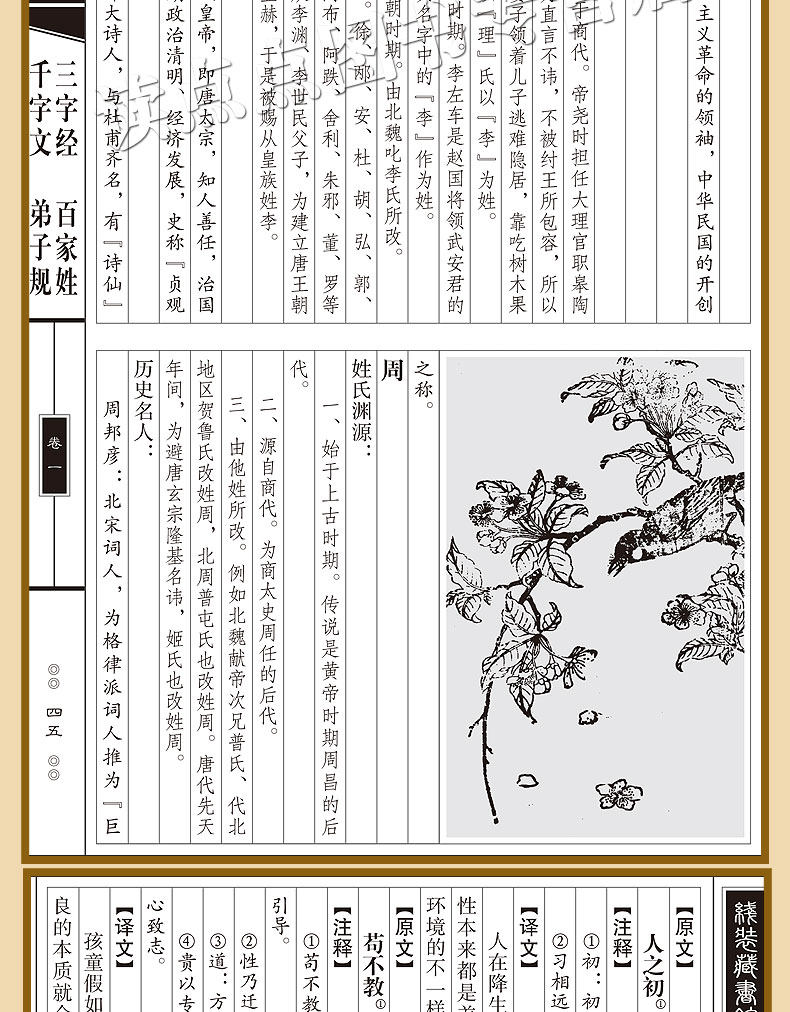 主义革命的领袖，中华民国的开创
于商代。帝尧时担任大理官职皋陶
直言不讳，不被纣王所包容，所以
子领着儿子逃难隐居，靠吃树木果
理』氏以『李』为姓。
时期。李左车是赵国将领武安君的
名字中的『李』作为姓。
朝时期。由北魏叱李氏所改。
徐、邴、安、杜、胡、弘、郭、
布、阿跌、舍利、朱邪、董、罗等
李渊、李世民父子，为建立唐王朝
赫，于是被赐从皇族姓李。
皇帝，即唐太宗，知人善任，治国
政治清明、经济发展，史称『贞观
大诗人，与杜甫齐名，有『诗仙』
之称。
周
姓氏渊源：
一、始于上古时期。传说是黄帝时期周昌的后
代。
二、源自商代。为商太史周任的后代。
三、由他姓所改。例如北魏献帝次兄普氏、代北
地区贺鲁氏改姓周，北周普屯氏也改姓周。唐代先天
年间，为避唐玄宗隆基名讳，姬氏也改姓周。
历史名人：
周邦彦：北宋词人，为格律派词人推为『巨
三字经 百家姓
千字文 弟子规
卷一
四五
线装藏书
【原文】
人之初①
【注释】
①初：初
②习相远
【译文】
人在降生
性本来都是善
环境的不一样
【原文】
苟不教①
【注释】
①苟不教
引导。
②性乃迁
③道：方
④贵以专
心致志。
【译文】
孩童假如
良的本质就会